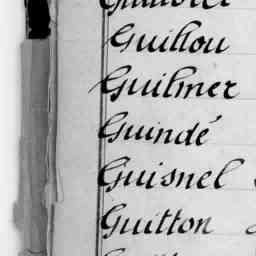 Guillou
Guilmer
Guindé
Guisnel
Guitton